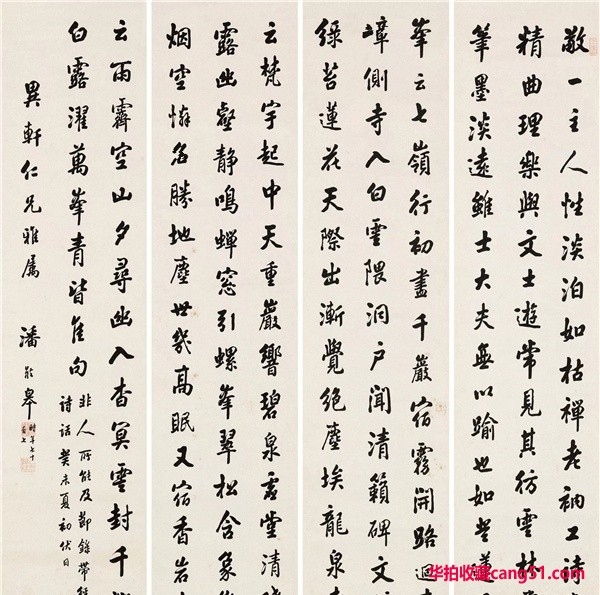 敬一主人性淡泊如枯禪老衲工詩
精曲理樂與文士遊常見其仿雲林
筆墨淡遠雖士大夫無以踰也如登蓮
峯云七嶺行初盡千巖宿霧開路迴
嶂側寺入白雲隈洞戶聞清籟碑文
綠苔蓮花天際出漸覺絕塵埃龍泉
云梵宇起中天重巖響碧泉虛堂清
露幽壑靜鳴蟬窓引螺峯翠松含象
烟空慚名勝地塵世幾高眠又宿香岩
云雨霽空山夕尋幽入杳冥雲封千
白露濯萬峯青皆佳句
非人所能及節錄帶經
詩話癸未夏初伏日
異軒仁兄雅屬
潘齡皋
時年七十有七
华拍收藏cang51.com